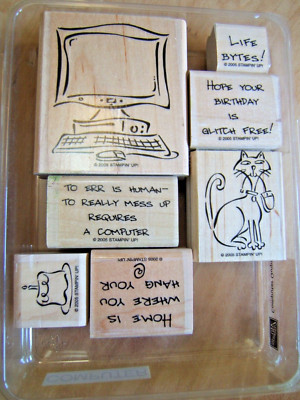 © 2005 STAMPIN' UP!
LIFE
BYTES!
© 2005 STAMPIN' UP!
HOPE YOUR
BIRTHDAY
IS
GLITCH FREE!
© 2005 STAMPIN' UP!
TO ERR IS HUMAN—
TO REALLY MESS UP
REQUIRES
A COMPUTER
© 2005 STAMPIN' UP!
© 2005 STAMPIN' UP!
© 2005 STAMPIN' UP!
HOME IS
WHERE YOU
HANG YOUR
@
© 2005 STAMPIN' UP!